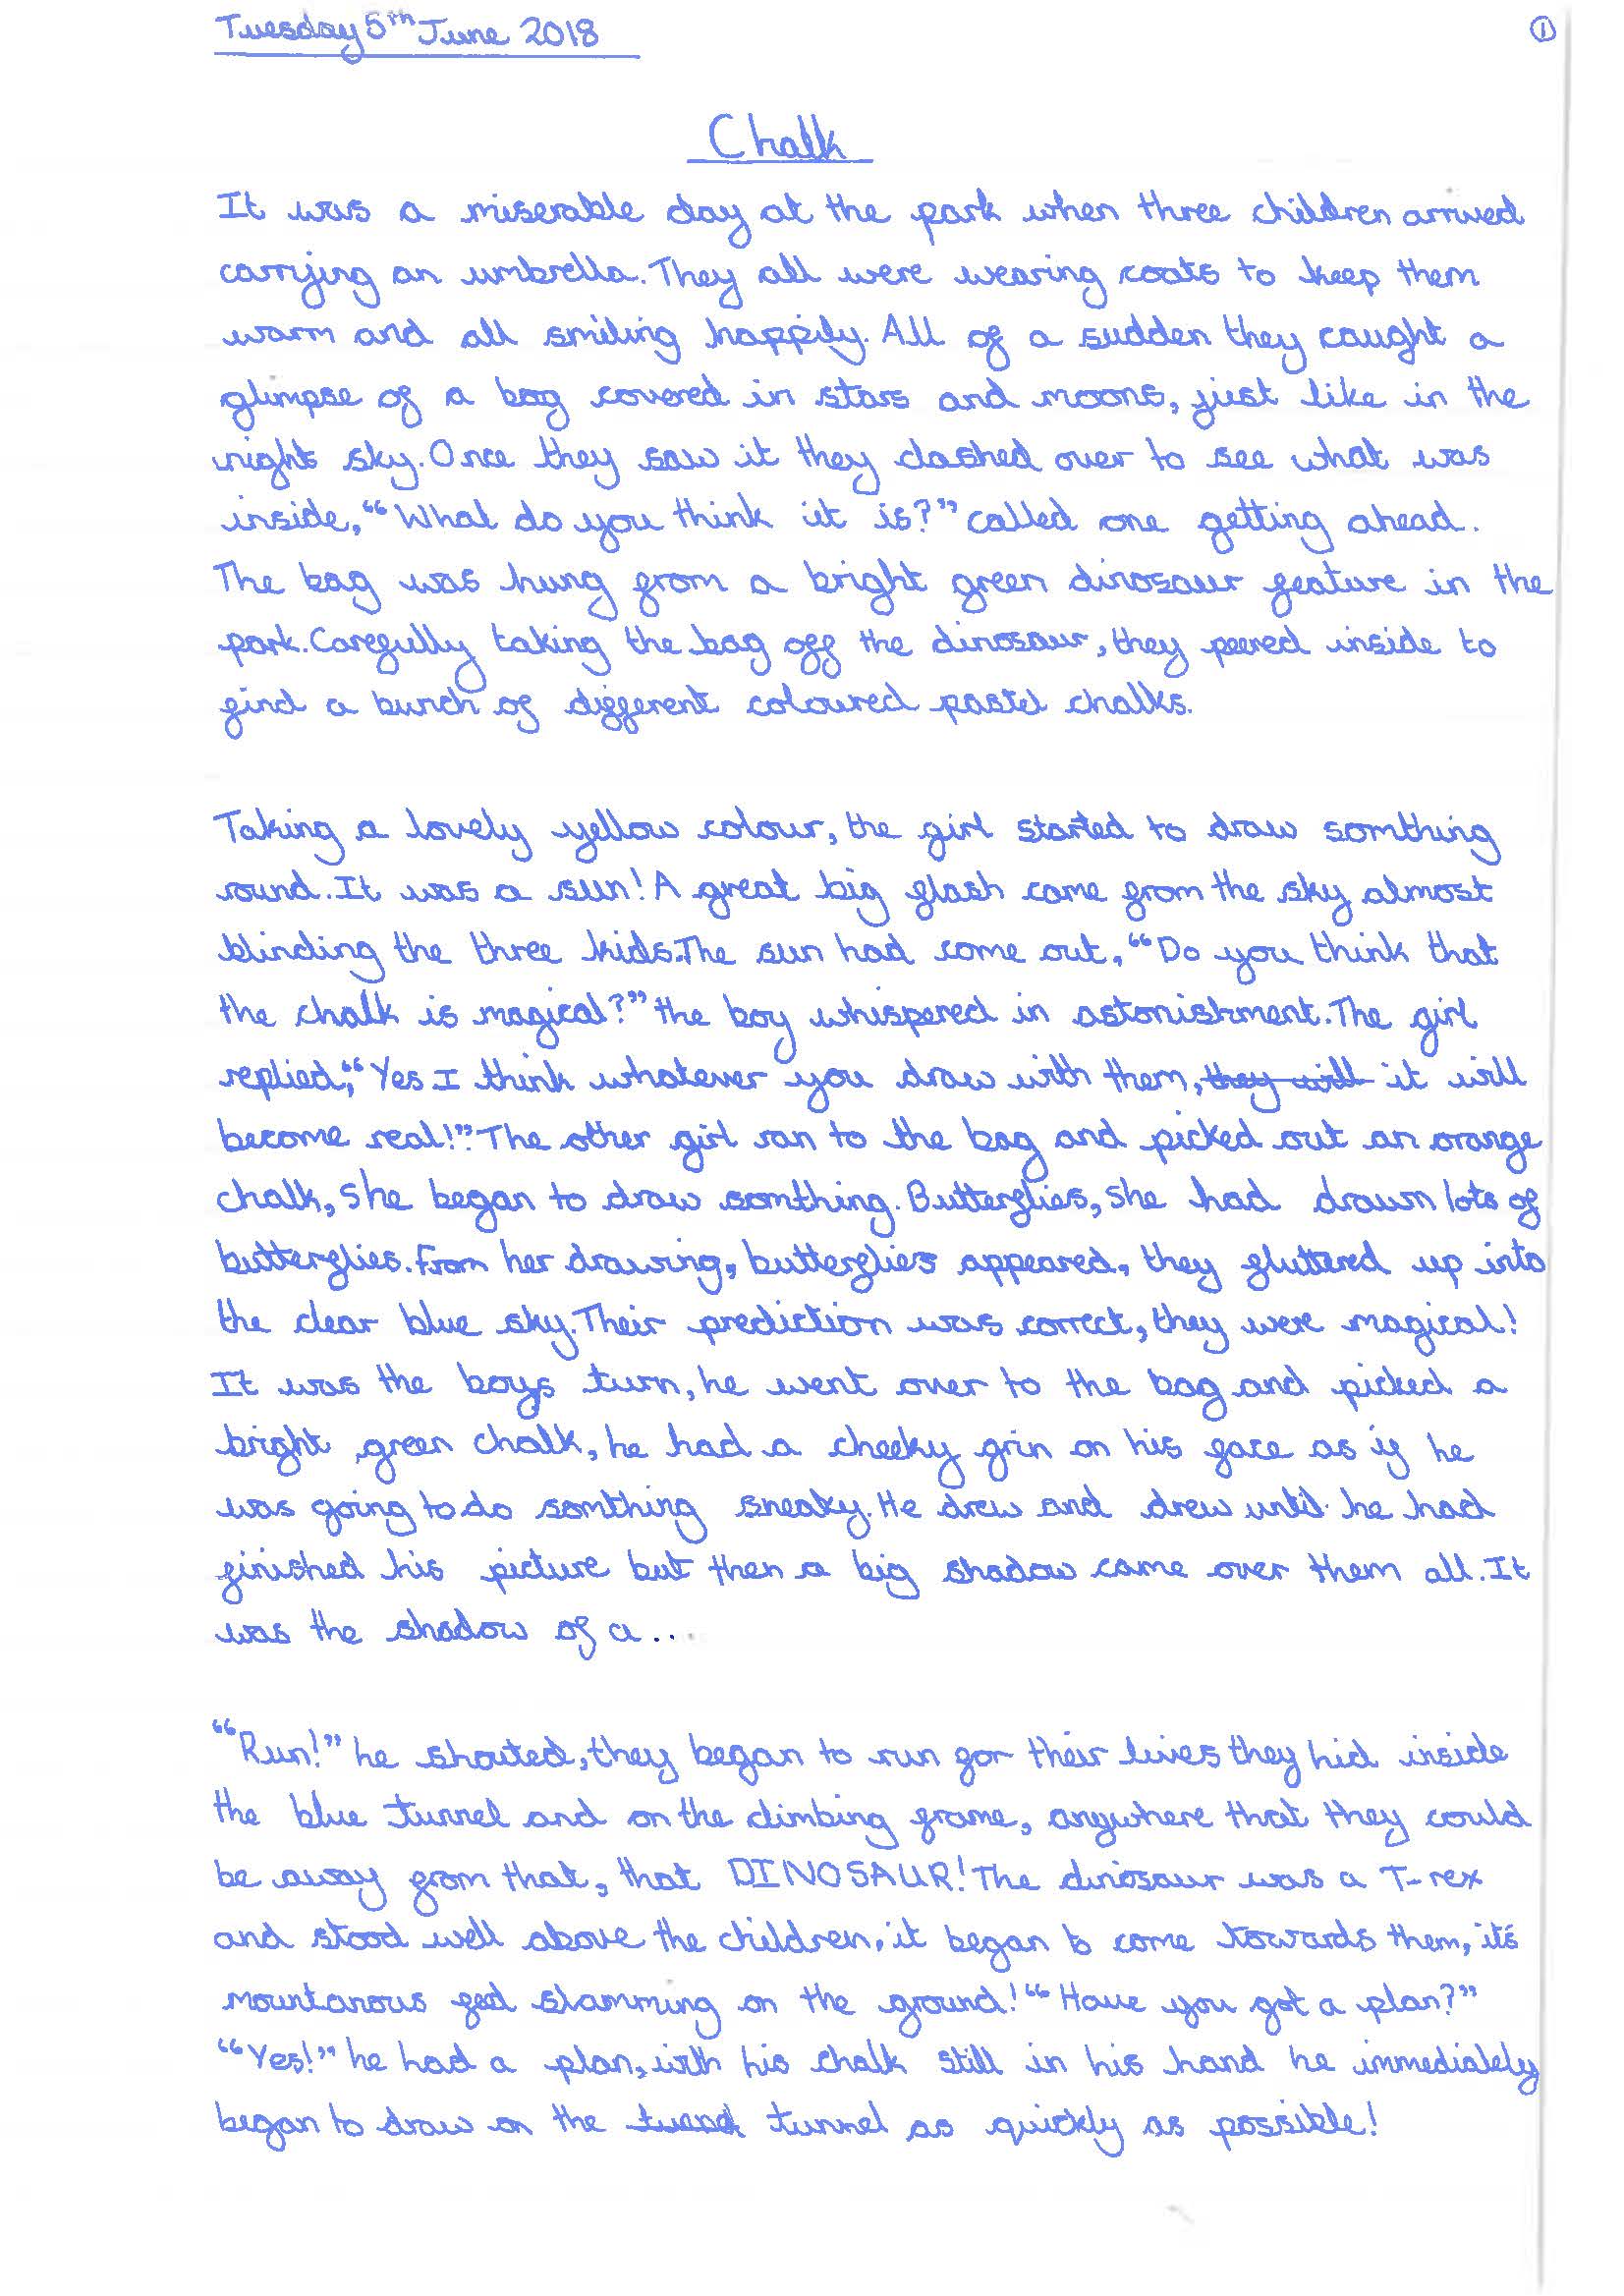 Tuesday 5th June 2018
①
Chalk
It was a miserable day at the park when three children arrived
carrying an umbrella. They all were wearing coats to keep them
warm and all smiling happily. All of a sudden they caught a
glimpse of a bag covered in stars and moons, just like in the
night sky. Once they saw it they dashed over to see what was
inside, “What do you think it is?” called one getting ahead.
The bag was hung from a bright green dinosaur feature in the
park. Carefully taking the bag off the dinosaur, they peered inside to
find a bunch of different coloured pastel chalks.
Taking a lovely yellow colour, the girl started to draw somthing
round. It was a sun! A great big flash came from the sky almost
blinding the three kids. The sun had come out, “Do you think that
the chalk is magical?” the boy whispered in astonishment. The girl
replied, “Yes I think whatever you draw with them, they will it will
become real!” The other girl ran to the bag and picked out an orange
chalk, she began to draw somthing. Butterflies, she had drawn lots of
butterflies. From her drawing, butterflies appeared, they fluttered up into
the clear blue sky. Their prediction was correct, they were magical!
It was the boys turn, he went over to the bag and picked a
bright green chalk, he had a cheeky grin on his face as if he
was going to do somthing sneaky. He drew and drew until he had
finished his picture but then a big shadow came over them all. It
was the shadow of a...
“Run!” he shouted, they began to run for their lives they hid inside
the blue tunnel and on the climbing frame, anywhere that they could
be away from that, that DINOSAUR! The dinosaur was a T-rex
and stood well above the children, it began to come towards them, it's
mountanous feet slamming on the ground! “Have you got a plan?”
“Yes!” he had a plan, with his chalk still in his hand he immediately
began to draw on the tunnel as quickly as possible!